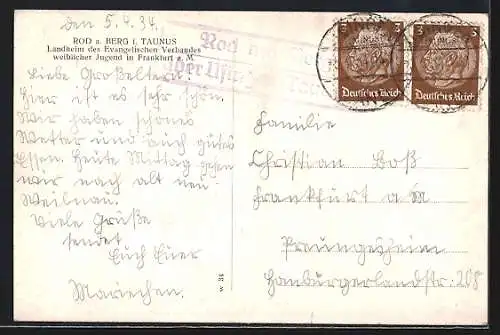 den 5.4.34.
ROD a. BERG i. TAUNUS
Landheim des Evangelischen Verbandes
weiblicher Jugend in Frankfurt a. M.
Liebe Großeltern
Hier ist es sehr schön.
Wir haben schönes
Wetter und auch gutes
Essen. Heute Mittag gehen
wir nach alt neu-
Weilnau.
Viele Grüße
sendet
Euch Euer
Mariechen.
Rod
über Usingen
3 3
Deutsches Reich Deutsches Reich
Familie
Christian Boß
Frankfurt a M
Preungesheim
Homburgerlandstr. 208
W 34